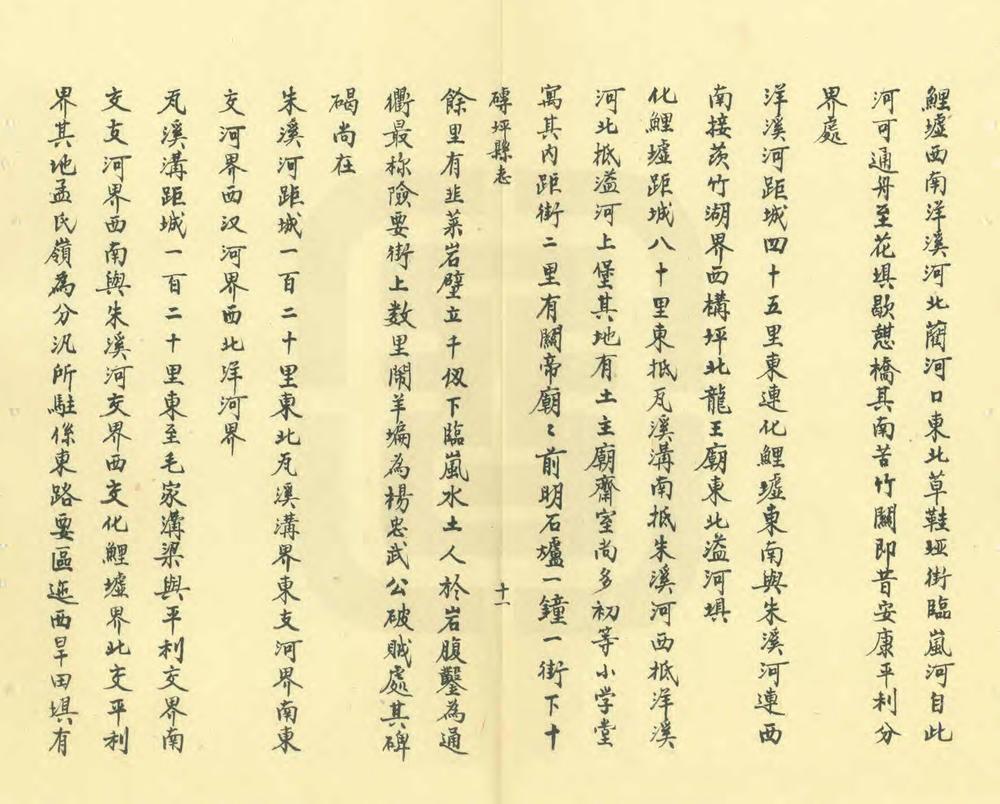 鯉墟西南洋溪河北藺河口東北草鞋埡街臨嵐河自此
河可通舟至花埧歇憇橋其南苦竹關即昔安康平利分
界處
洋溪河距城四十五里東連化鯉墟東南與朱溪河連西
南接茨竹湖界西構坪北龍王廟東北溢河埧
化鯉墟距城八十里東抵瓦溪溝南抵朱溪河西抵洋溪
河北抵溢河上堡其地有土主廟齋室尚多初等小学堂
寓其内距街二里有關帝廟〻前明石爐一鐘一街下十
磚坪縣志
十一
餘里有韭菜岩壁立千仭下臨嵐水土人於岩腹鑿為通
衢最称險要街上数里鬧羊墕為楊忠武公破賊處其碑
碣尚在
朱溪河距城一百二十里東北瓦溪溝界東支河界南東
交河界西汉河界西北洋河界
瓦溪溝距城一百二十里東至毛家溝梁與平利交界南
交支河界西南與朱溪河交界西交化鯉墟界北交平利
界其地孟氏嶺為分汛所駐係東路要區迤西旱田埧有